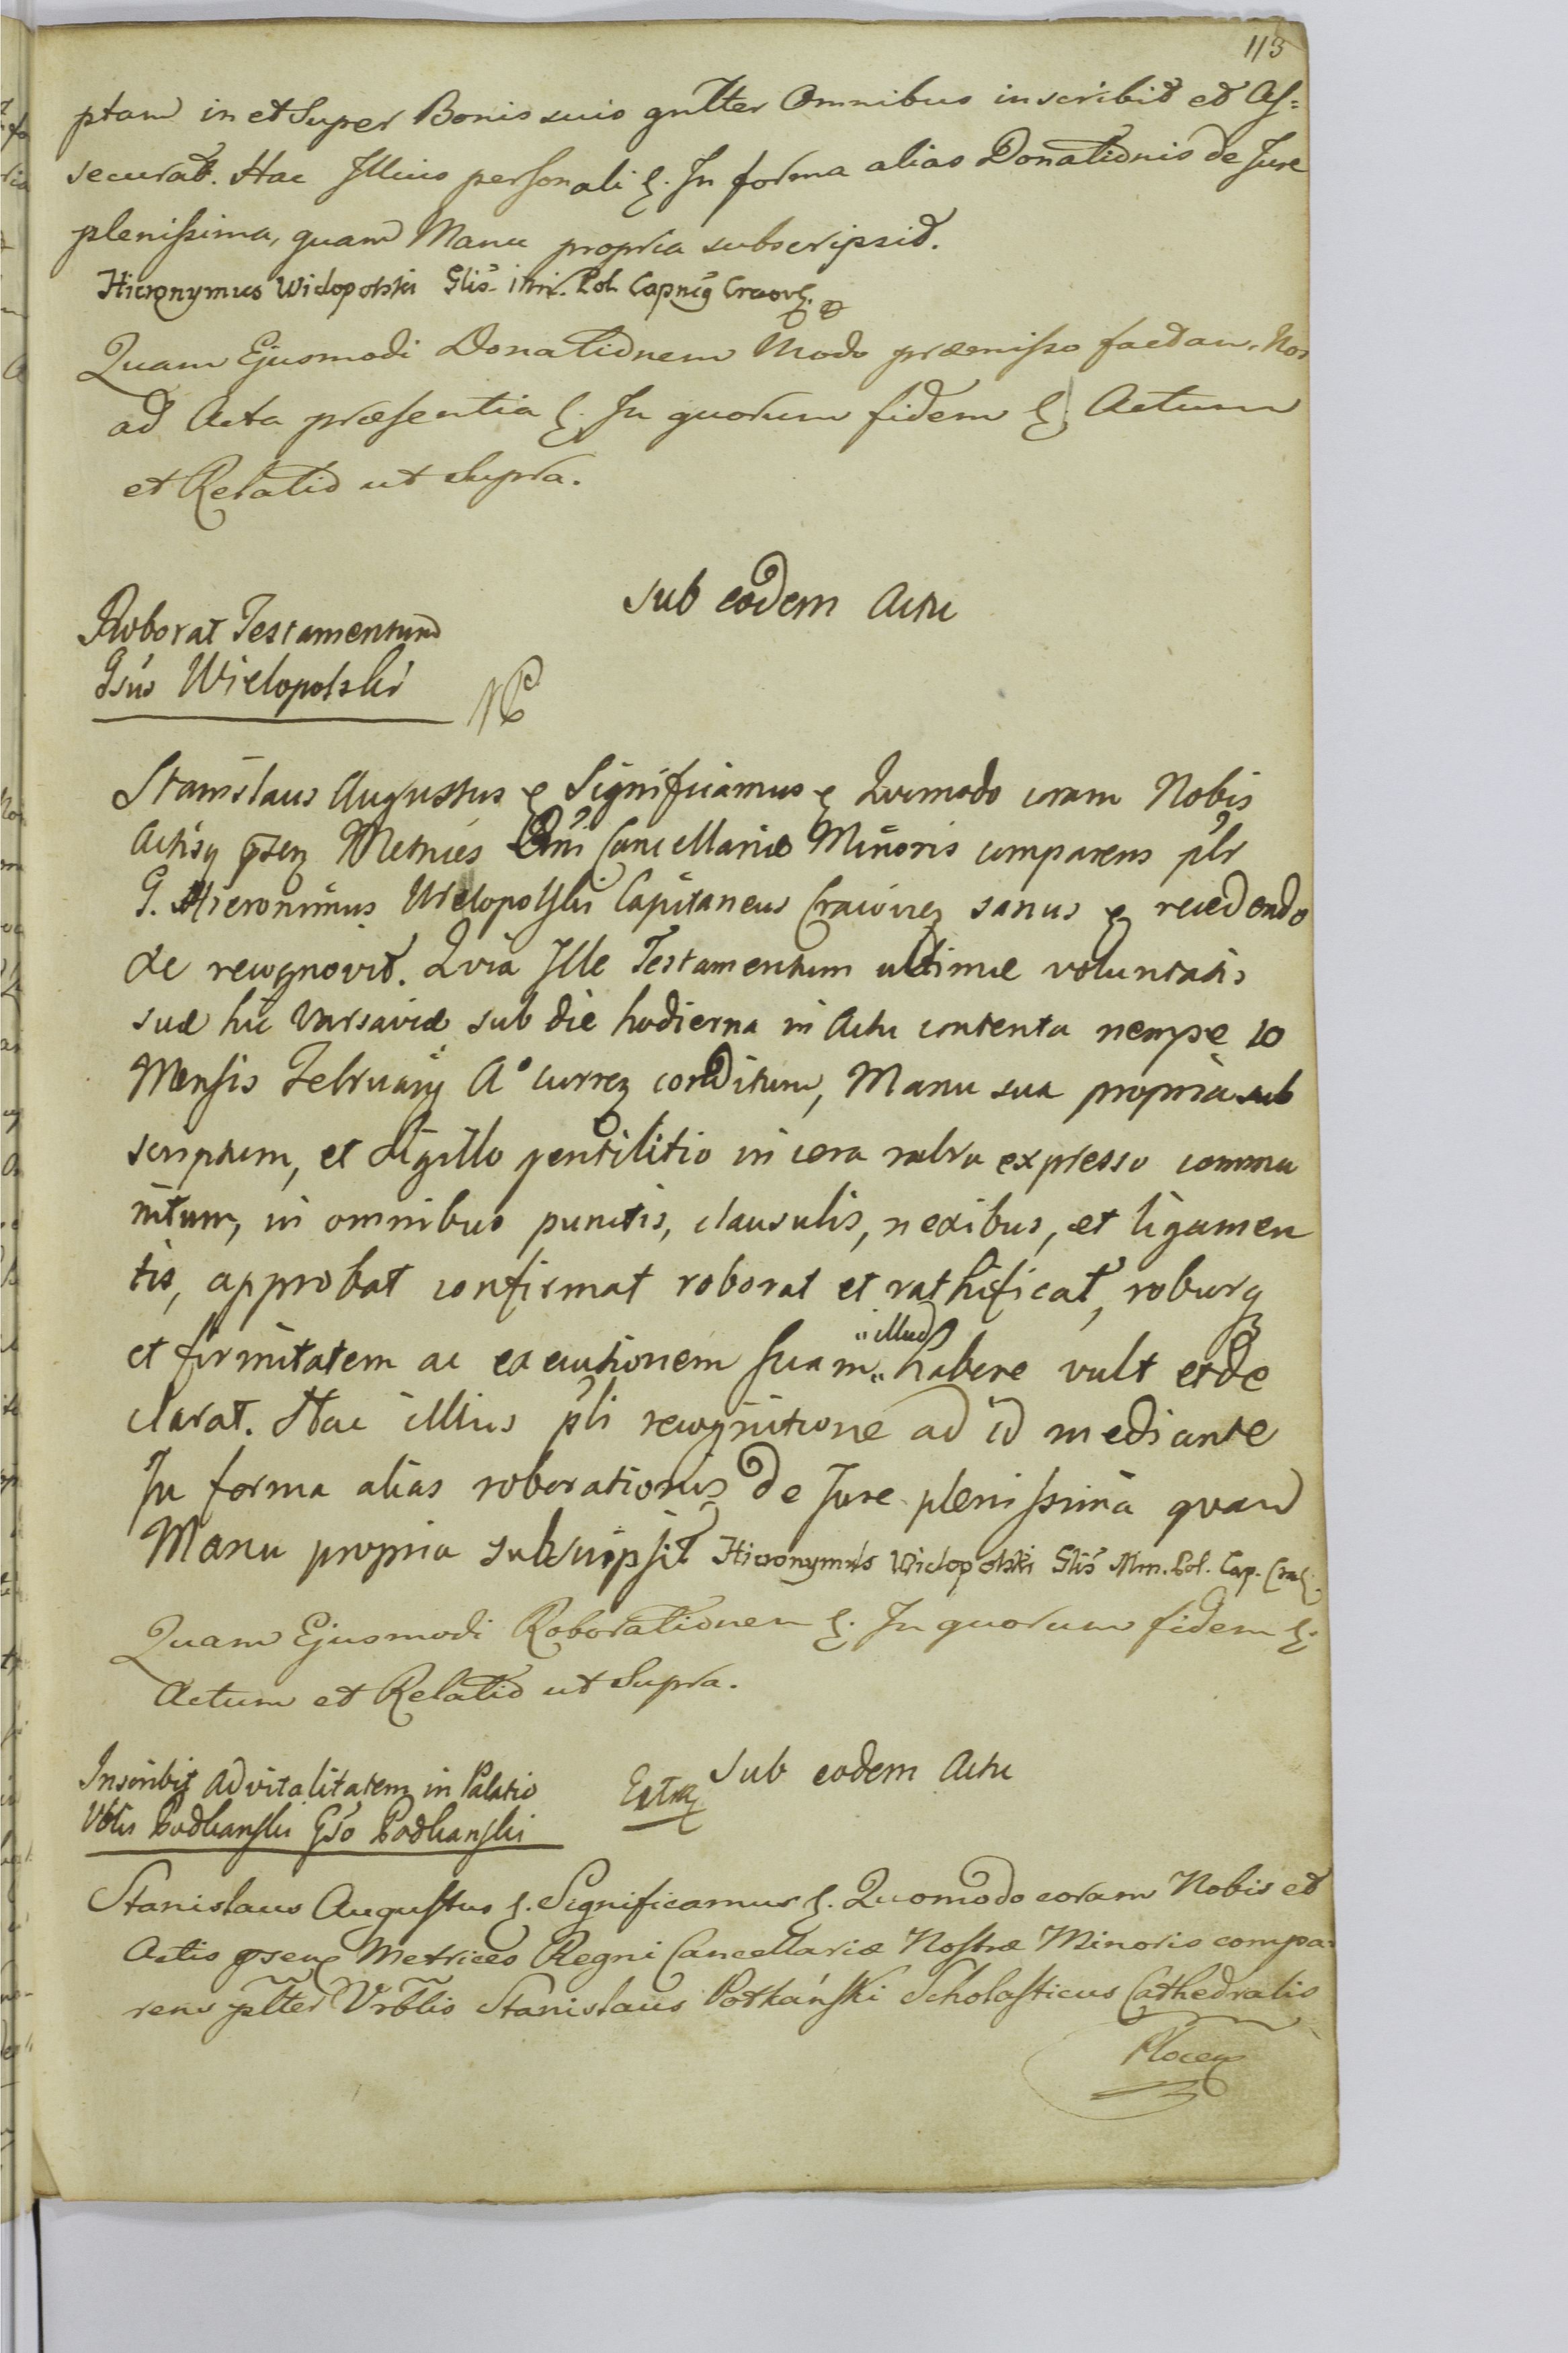 113
ptam in et Super Bonis suis gnlter Omnibus inscribit et As=
securat. Hac Illius personali &. In forma alias Donationis de Jure
plenissima, quam Manu propria subscripsit.
Hieronymus Wielopolski Glis Pol. Capneg
Quam Ejusmodi Donationem Modo præmisso factam, Nos
ad Acta præsentia &. In quorum fidem &. Actum
et Relatio ut Supra.
Sub eodem Actu
Roborat Testamentum
Gsus Wielopolski
Stanislaus Augustus & Significamus & Quomodo coram Nobis
Actisq pzen Metrices Rni Cancellariæ Minoris comparens plr
G. Hieronimus Wielopolski Capitaneus Cracovien sanus & recedendo
&c recognovit. Quia Ille Testamentum ultimæ voluntatis
suæ hic Varsaviæ sub die hodierna in Actu contenta nempe 10
Mensis February A° curren conditum, Manu sua propria sub
scriptum, et Sigillo gentilitio in cera rubra expresso commu
nitum, in omnibus punctis, clausulis, nexibus, et ligamen
tis, approbat confirmat roborat et rathificat, roburq
et firmitatem ac executionem suam „illud„ habere vult et de
clarat. Hac illius pli recognitione ad id mediante
In forma alias roborationis de Jure plenissima quam
Manu propria subscripsit Hieronymus Wielopolski Glis Min. Pol. Cap. Cra&.
Quam Ejusmodi Roborationem &. In quorum fidem &.
Actum et Relatio ut Supra.
Sub eodem Actu
Inscribit advitalitatem in Palatio
Vblis Podkanski Gso Podkanski
Extra
Stanislaus Augustus &. Significamus &. Quomodo coram Nobis et
Actis psen Metrices Regni Cancellariæ Nostræ Minoris compa=
rens plter Vrblis Stanislaus Potkański Scholasticus Cathedralis
Plocen